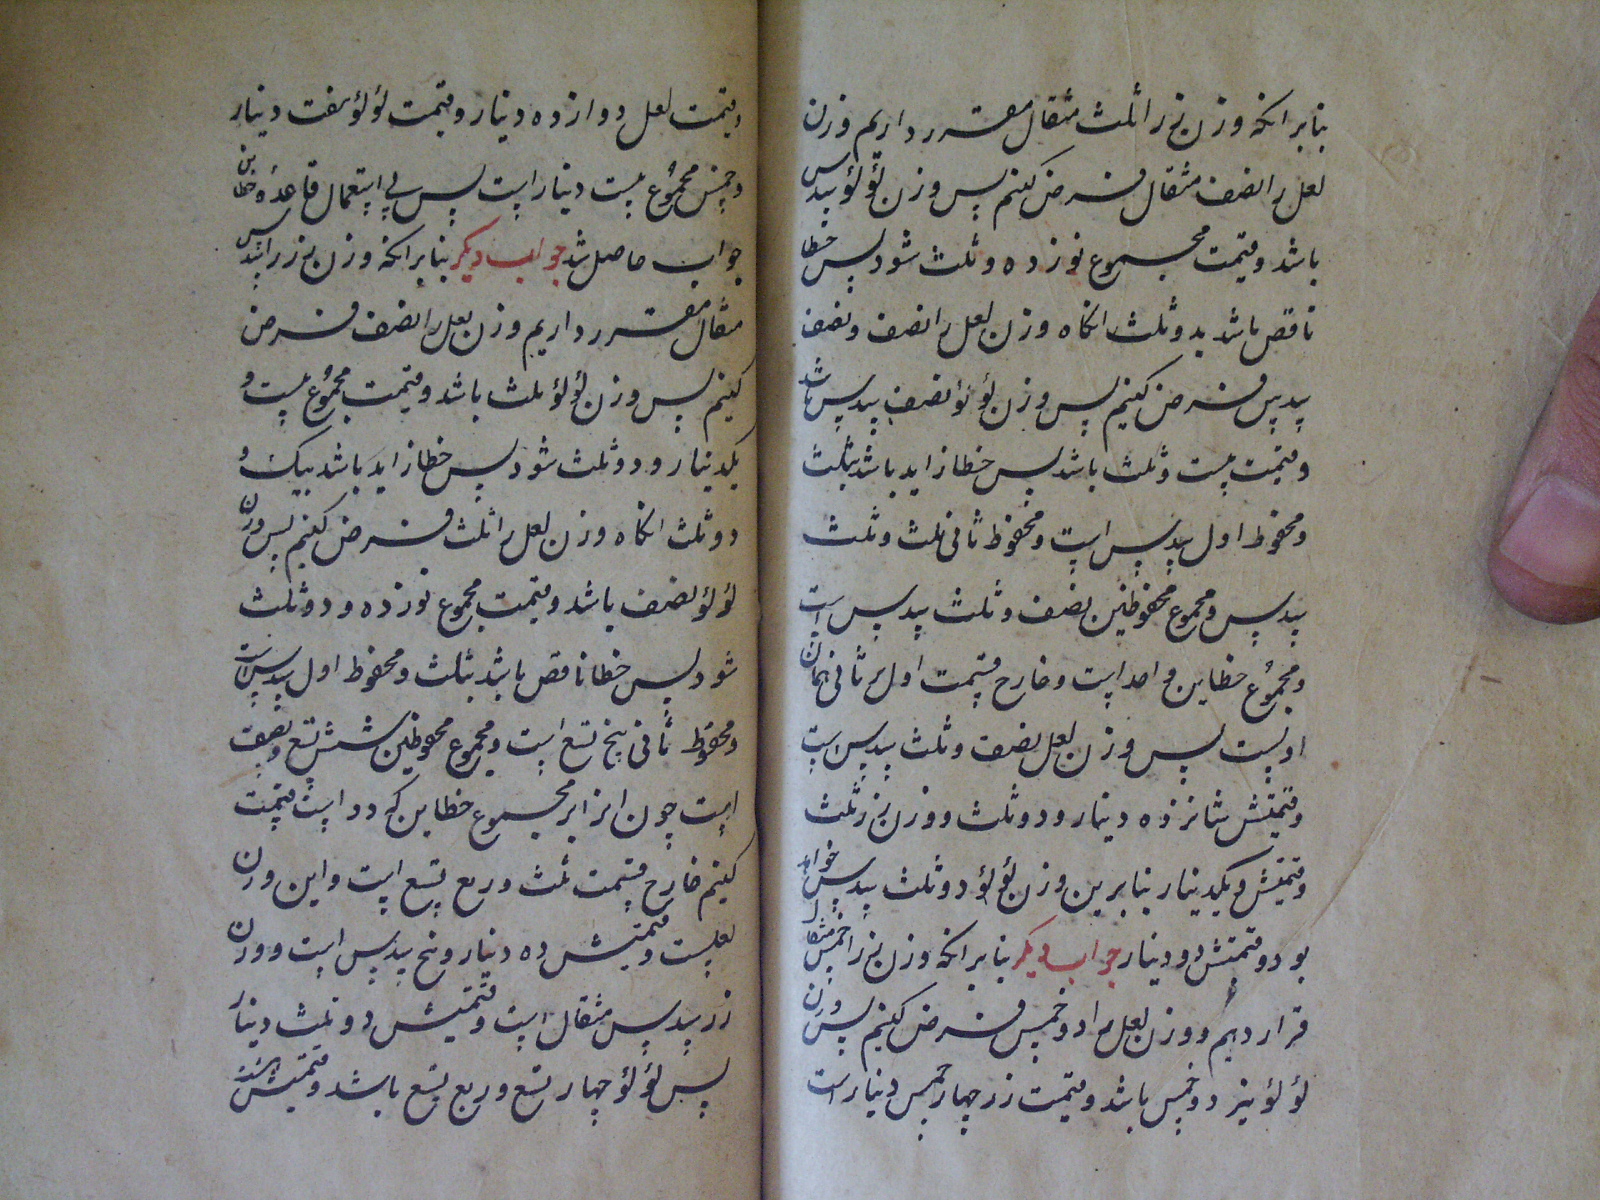 بنابر انکه وزن زر را ثلث مثقال مقرر داریم وزن
لعل را نصف مثقال فرض کنیم پس وزن لؤلؤ سدس
باشد و قیمت مجموع نوزده و ثلث شود پس خطا
ناقص باشد بدو ثلث انکاه وزن لعل را نصف و نصف
سدس فرض کنیم پس وزن لؤلؤ نصف سدس باشد
و قیمت بیست و ثلث باشد پس خطا زاید باشد بثلث
و محفوظ اول سدس است و محفوظ ثانی ثلث و ثلث
سدس و مجموع محفوظین نصف و ثلث سدس است
و مجموع خطاین واحد است و خارج قسمت اول بر ثانی همان
اوست پس وزن لعل نصف و ثلث سدس است
و قیمتش شانزده دینار و دو ثلث و وزن زر ثلث
و قیمتش ویکدینار بنابرین وزن لؤلؤ دو ثلث سدس خواهد
بود و قیمتش دو دینار جواب دیکر بنابر انکه وزن زر را خمس مثقال
قرار دهیم و وزن لعل را دو خمس فرض کنیم پس وزن
لؤلؤ نیز دو خمس باشد و قیمت زر چهار خمس دینار است
و قیمت لعل دوازده دینار و قیمت لؤلؤ هفت دینار
و خمس مجموع بیست دینار است پس بی استعمال قاعدهٔ خطاین
جواب حاصل شد جواب دیکر بنابر انکه وزن زر را سدس
مثقال مقرر داریم وزن لعل را نصف فرض
کنیم پس وزن لؤلؤ ثلث باشد و قیمت مجموع بیست و
یکدینار و دو ثلث شود پس خطا زاید باشد بیک و
دو ثلث انکاه وزن لعل را ثلث فرض کنیم پس وزن
لؤلؤ نصف باشد و قیمت مجموع نوزده و دو ثلث
شود پس خطا ناقص باشد بثلث و محفوظ اول سدس است
و محفوظ ثانی پنج تسع است و مجموع محفوظین شش تسع و نصف
است چون انرا بر مجموع خطاین که دو است قسمت
کنیم خارج قسمت ثلث و ربع تسع است و این وزن
لعلست و قیمتش ده دینار و پنج سدس است و وزن
زر سدس مثقال است و قیمتش دو ثلث دینار
پس لؤلؤ چهار تسع و ربع تسع باشد و قیمتش هشت